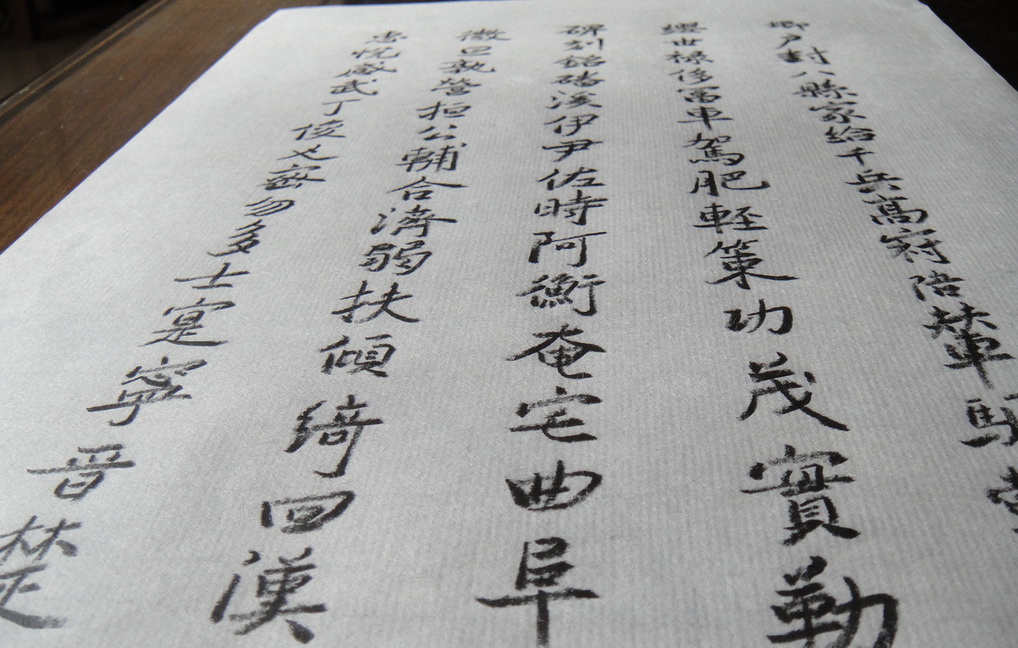 卿户封八縣家給千兵高冠陪輦驅
纓世禄侈富車駕肥輕策功茂實勒
碑刻銘磻溪伊尹佐時阿衡奄宅曲阜
微旦孰營桓公輔合濟弱扶傾綺回漢
惠悦感武丁俊乂密勿多士寔寧晋楚